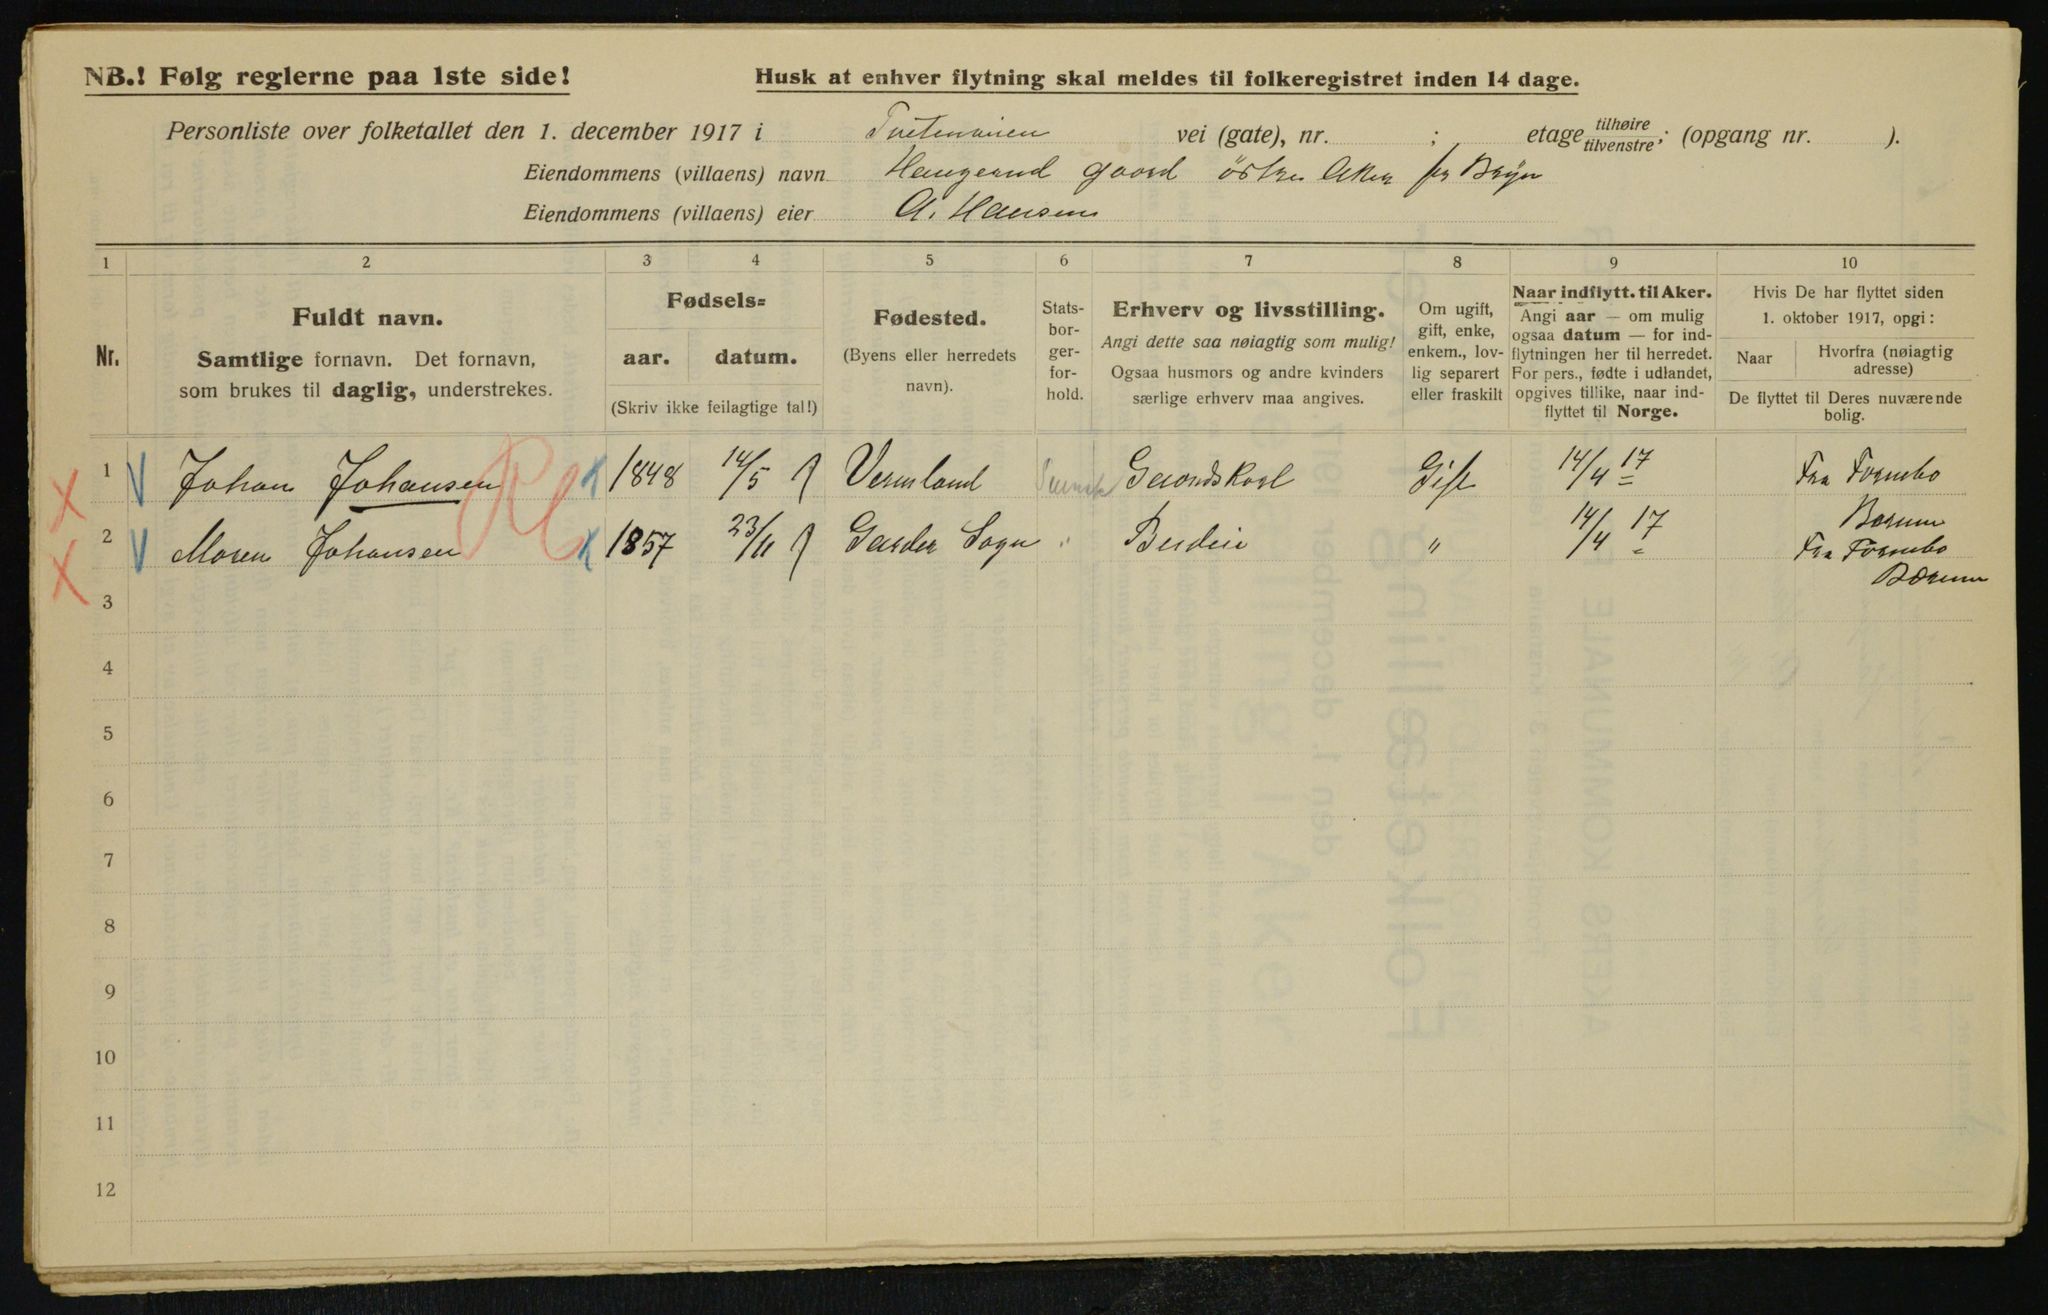 NB.! Følg reglerne paa 1ste side!
Husk at enhver flytning skal meldes til folkeregistret inden 14 dage.
Personliste over folketallet den 1. december 1917 i Tvetenveien vei (gate), nr. ; etage tilhøire tilvenstre; (opgang nr. ).
Eiendommens (villaens) navn Haugerud gaard östre Aker pr Bryn
Eiendommens (villaens) eier A. Hansen
1 2 3 4 5 6 7 8 9 10
Nr.
Fuldt navn.
Samtlige fornavn. Det fornavn,
som brukes til daglig, understrekes.
Fødsels=
aar. datum.
(Skriv ikke feilagtige tal!)
Fødested.
(Byens eller herredets
navn).
Stats-
bor-
ger-
for-
hold.
Erhverv og livsstilling.
Angi dette saa nøiagtig som mulig!
Ogsaa husmors og andre kvinders
særlige erhverv maa angives.
Om ugift,
gift, enke,
enkem., lov-
lig separert
eller fraskilt
Naar indflytt. til Aker.
Angi aar — om mulig
ogsaa datum — for ind-
flytningen her til herredet.
For pers., fødte i udlandet,
opgives tillike, naar ind-
flyttet til Norge.
Hvis De har flyttet siden
1. oktober 1917, opgi:
Naar
Hvorfra (nøiagtig
adresse)
De flyttet til Deres nuværende
bolig.
1 Johan Johansen 1848 14/5 Vermland Svensk Gaardskarl Gift 14/4 17 Fra Fornebo
Bærum
2 Maren Johansen 1857 23/11 Garder Sogn " Budeie " 14/4 17 Fra Fornebo
Bærum
3
4
5
6
7
8
9
10
11
12